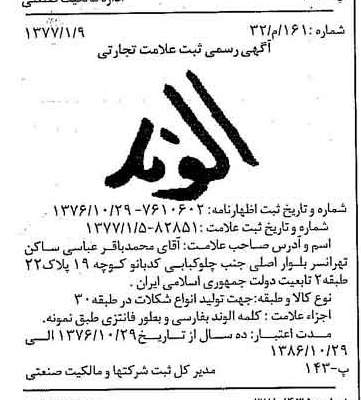 شماره :۱۶۱/م/۳۲ ۱۳۷۷/۱/۹
آگهی رسمی ثبت علامت تجارتی
الوند
شماره و تاریخ ثبت اظهارنامه: ۷۶۱۰۶۰۲-۱۳۷۶/۱۰/۲۹
شماره و تاریخ ثبت علامت: ۸۲۸۵۱-۱۳۷۷/۱/۵
اسم و آدرس صاحب علامت: آقای محمدباقر عباسی ساکن
تهرانسر بلوار اصلی جنب چلوکبابی کدبانو کوچه ۱۹ پلاک۲۲
طبقه۲ تابعیت دولت جمهوری اسلامی ایران .
نوع کالا و طبقه:جهت تولید انواع شکلات در طبقه۳۰
اجزاء علامت : کلمه الوند بفارسی و بطور فانتزی طبق نمونه.
مدت اعتبار: ده سال از تاریخ۱۳۷۶/۱۰/۲۹ الی
۱۳۸۶/۱۰/۲۹
پ-۱۴۳ مدیر کل ثبت شرکتها و مالکیت صنعتی